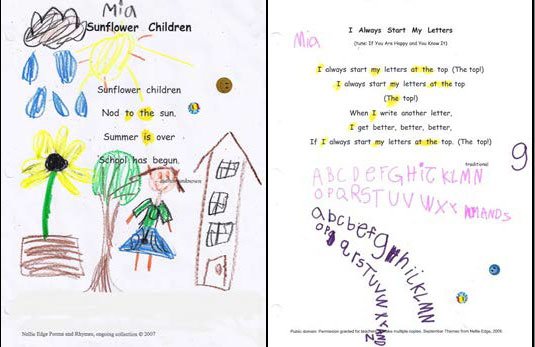 Mia
Sunflower Children
Sunflower children
Nod to the sun.
Summer is over
School has begun.
unknown
Nellie Edge Poems and Rhymes, ongoing collection © 2007
I Always Start My Letters
Mia
(tune: If You Are Happy and You Know It)
I always start my letters at the top (The top!)
I always start my letters at the top
(The top!)
When I write another letter,
I get better, better, better,
If I always start my letters at the top. (The top!)
traditional
9
ABCDEFGHIJKLMN
OPQRSTUVWXY
abcdefg
Public domain: Permission granted for make multiple copies. September Themes from Nellie Edge, 2006.